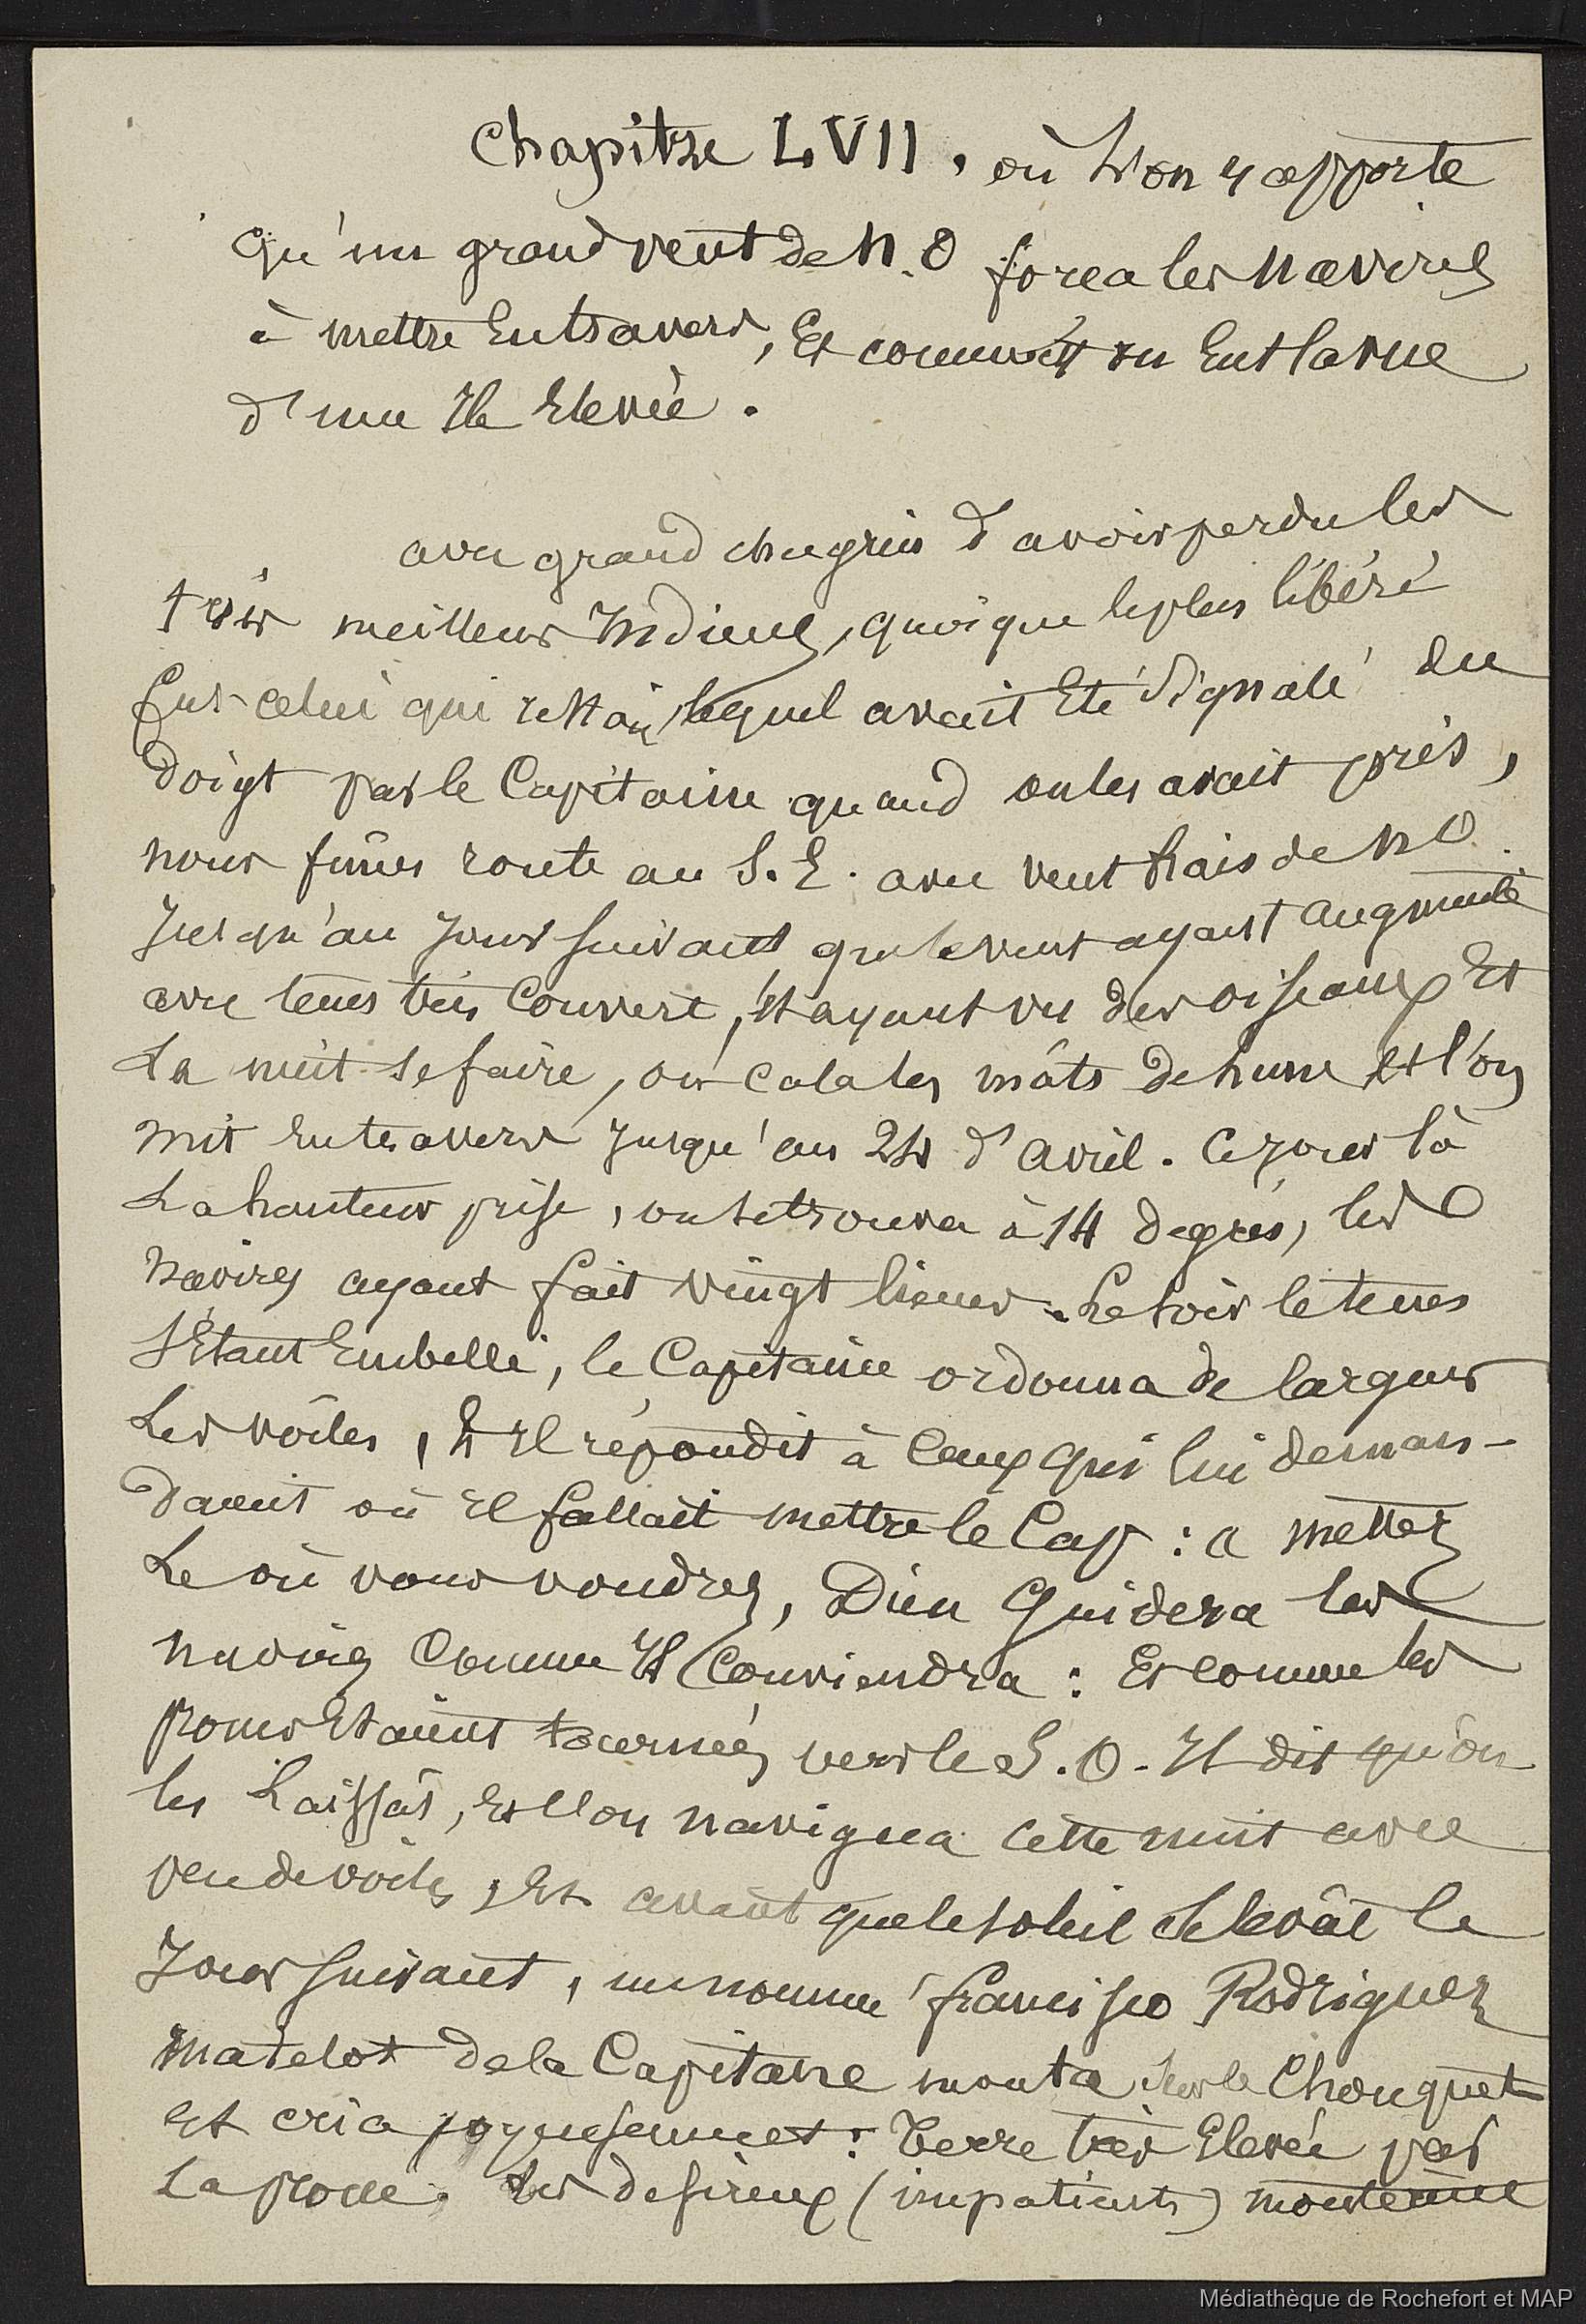 Chapitre LVII, où L'on rapporte
qu'un grand vent de N.O força les navires
à mettre En travers, Et comment on Eut la vue
d'une Ile Elevée.
avec grand chagrin d'avoir perdu les
trois meilleurs Indiens, quoique le plus libéré
fut celui qui resta, lequel avait Eté signalé du
doigt par le Capitaine quand on les avait pris,
nous fîmes route au S.E. avec vent frais de NO.
Jusqu'au Jour suivant que le vent ayant augmenté
avec tems très Couvert, Et ayant vu des oiseaux Et
La nuit se faire, on Cala les mâts de hune et l'on
mit En travers Jusqu'au 24 d'avril. Ce Jour là
La hauteur prise, on se trouva à 14 degrés, les
navires ayant fait vingt lieues. Le soir le tems
s'Etant Embelli, le Capitaine ordonna de larguer
Les voiles, Et Il répondit à Ceux qui lui deman-
daient où Il fallait mettre le Cap : a mettez
Le où vous voudrez, Dieu Guidera les
navires Comme Il Conviendra : Et comme les
proues Etaient tournées vers le S.O. Il dit qu'on
les Laissât, Et l'on navigua cette nuit avec
peu de voiles, Et avant que le soleil se levât le
Jour suivant, un nommé francisco Rodriguez
matelot de la Capitane monta sur le Chouquet
Et cria joyeusement : Terre très Elevée par
La proue. Les desireux (impatients) montèrent
Médiathèque de Rochefort et MAP